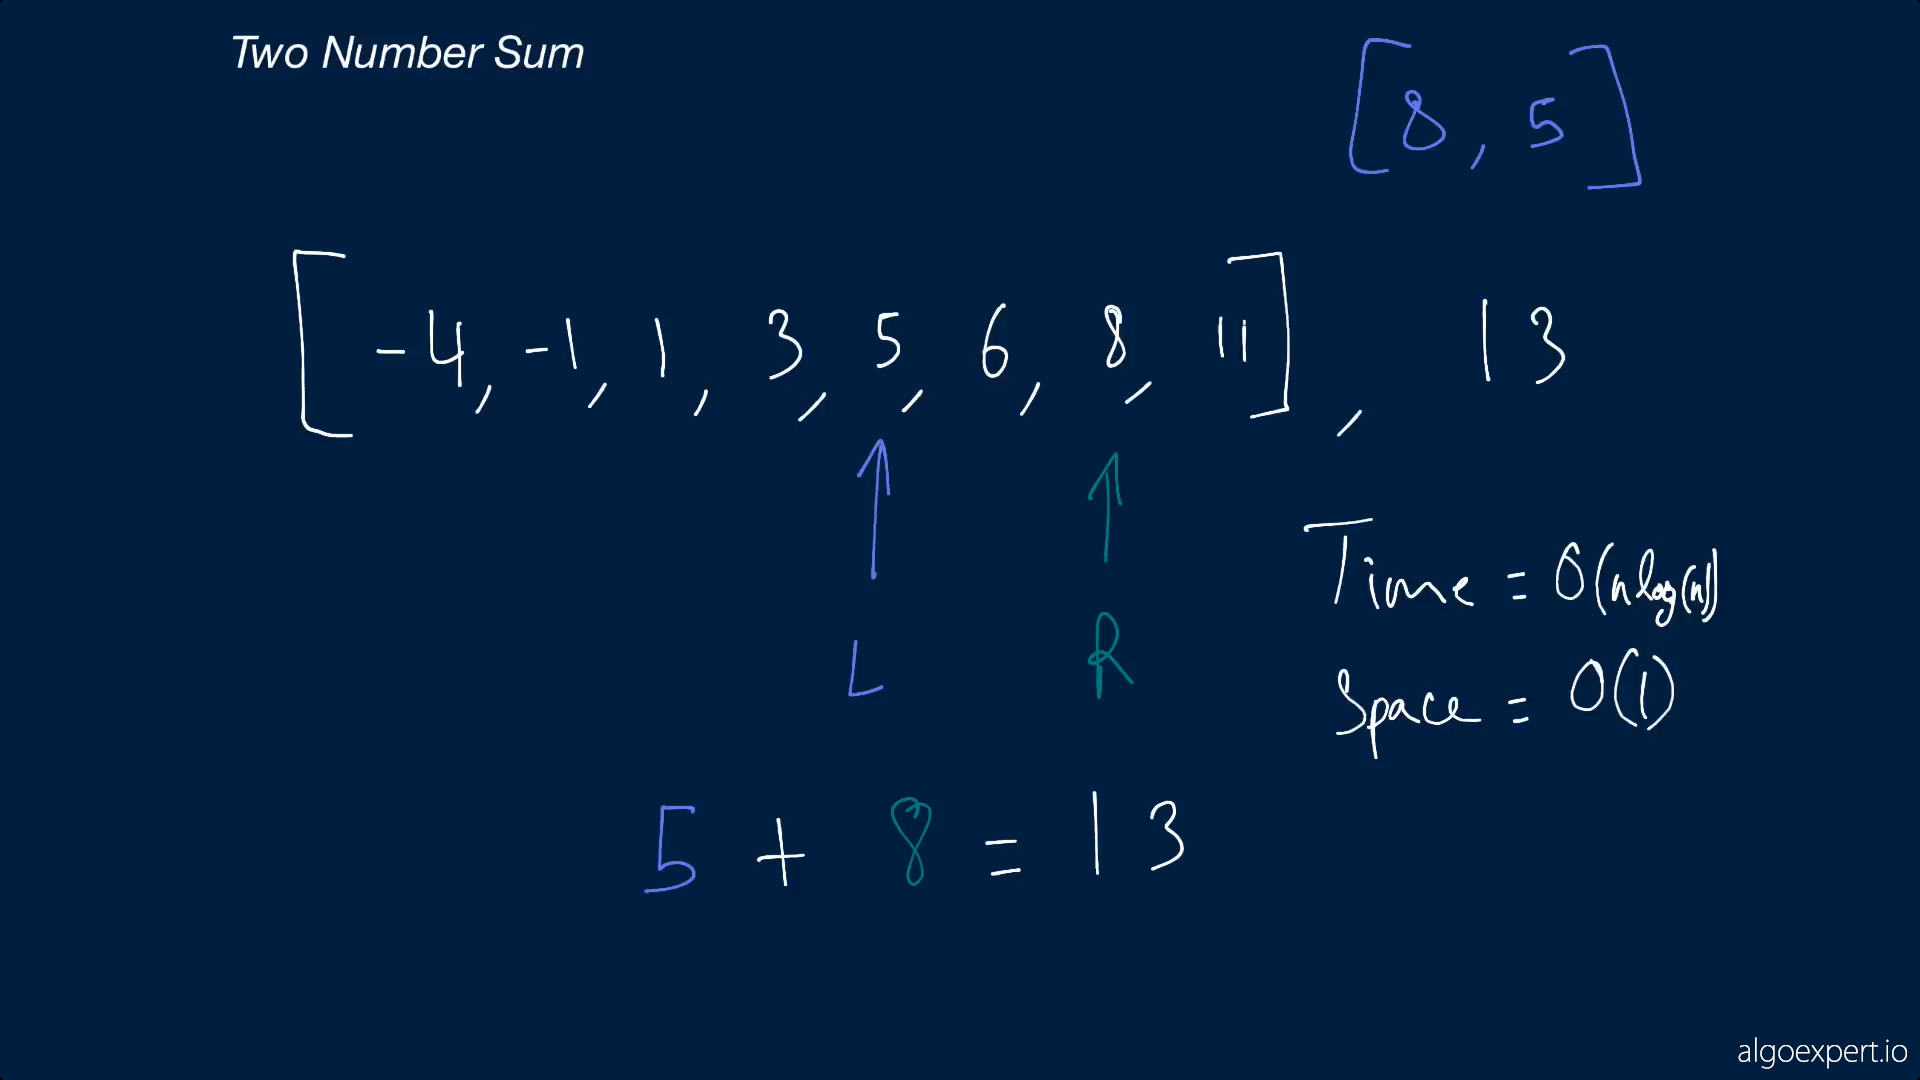 Two Number Sum
[8, 5]
[-4, -1, 1, 3, 5, 6, 8, 11], 13
L R
Time = O(nlog(n))
Space = O(1)
5 + 8 = 13
algoexpert.io